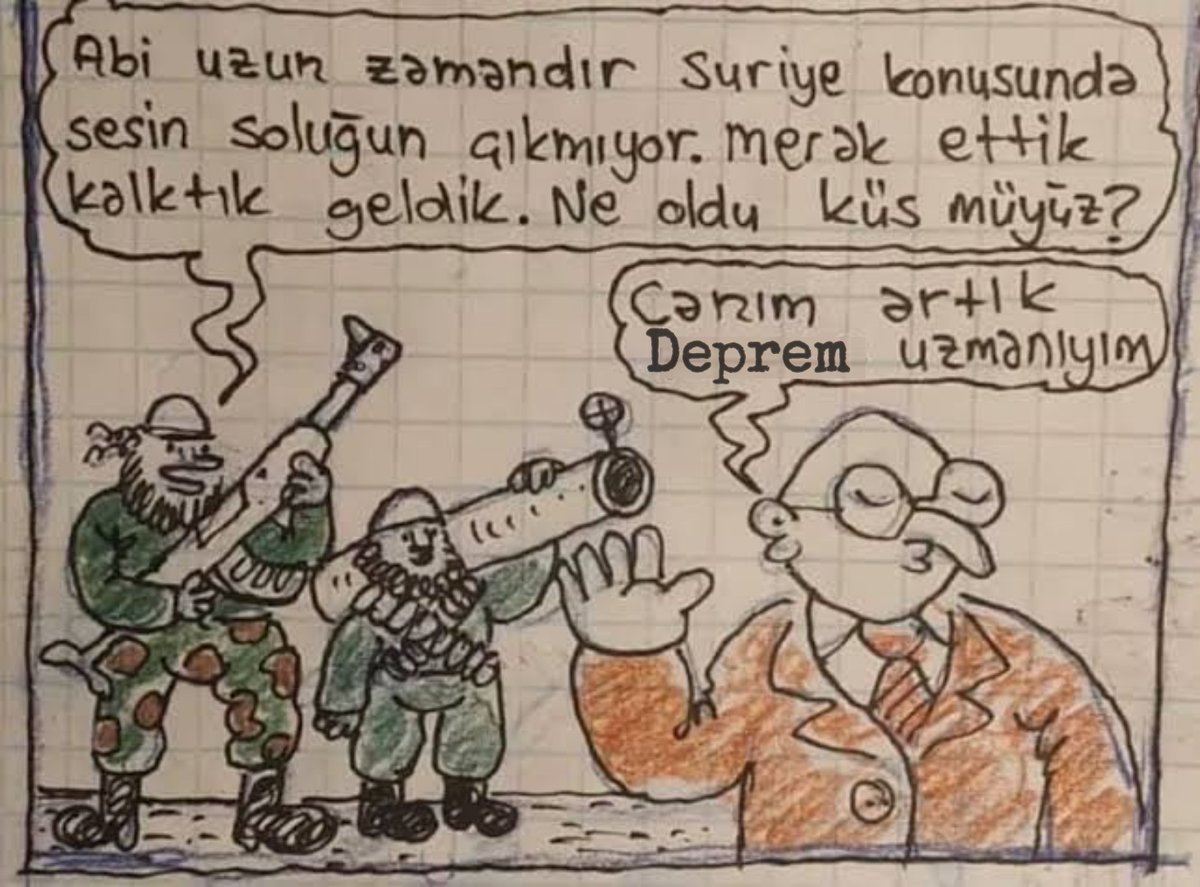 Abi uzun zamandır Suriye konusunda
sesin soluğun çıkmıyor. merak ettik
kalktık geldik. Ne oldu küs müyüz?
Canım artık
Deprem uzmanıyım